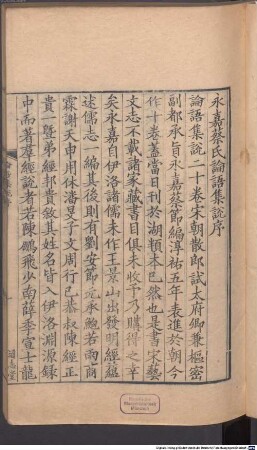 永嘉蔡氏論語集說序
論語集說二十卷宋朝散郎試太府卿兼樞密
副都承旨永嘉蔡節編淳祐五年表進於朝今
作十卷蓋當日刊於湖頖本已然也是書宋藝
文志不載諸家藏書目俱未收予乃購得之幸
矣永嘉自伊洛諸儒未作王景山出發明經蘊
述儒志一編其後則有劉安節元承鮑若雨商
霖謝天申用休潘旻子文周行己恭叔陳經正
貴一暨弟經邦貴敘其姓名皆入伊洛淵源錄
中而著羣經說者若陳鵬飛少南薛季宣士龍
通志堂